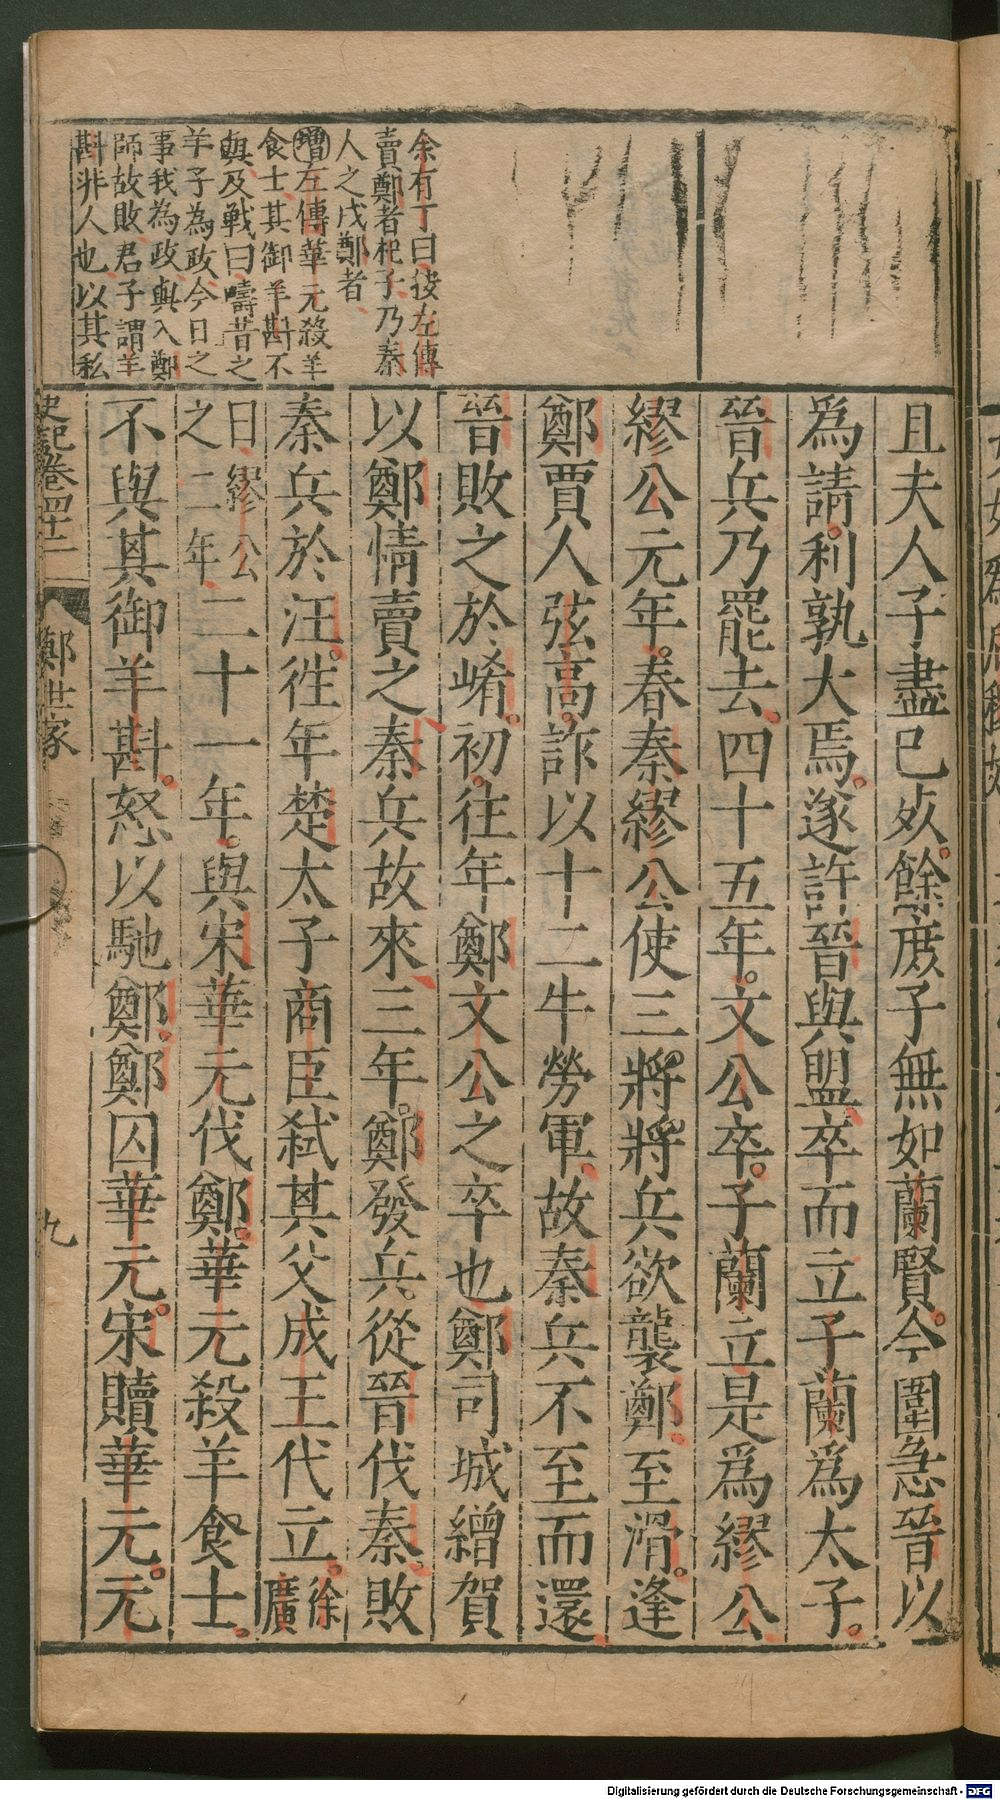 余有丁曰按左傳
賣鄭者杞子乃秦
人之戍鄭者
增左傳華元殺羊
食士其御羊斟不
與及戰曰疇昔之
羊子為政今日之
事我為政與入鄭
師故敗君子謂羊
斟非人也以其私
且夫人子盡已死餘庶子無如蘭賢今圍急晉以
爲請利孰大焉遂許晉與盟卒而立子蘭爲太子
晉兵乃罷去四十五年文公卒子蘭立是爲繆公
繆公元年春秦繆公使三將將兵欲襲鄭至滑逢
鄭賈人弦高詐以十二牛勞軍故秦兵不至而還
晉敗之於崤初往年鄭文公之卒也鄭司城繒賀
以鄭情賣之秦兵故來三年鄭發兵從晉伐秦敗
秦兵於汪徃年楚太子商臣弑其父成王代立徐廣
曰繆公之二年二十一年與宋華元伐鄭華元殺羊食士
不與其御羊斟怒以馳鄭鄭囚華元宋贖華元元
史記卷四十二 鄭世家 九
Digitalisierung gefördert durch die Deutsche Forschungsgemeinschaft - DFG